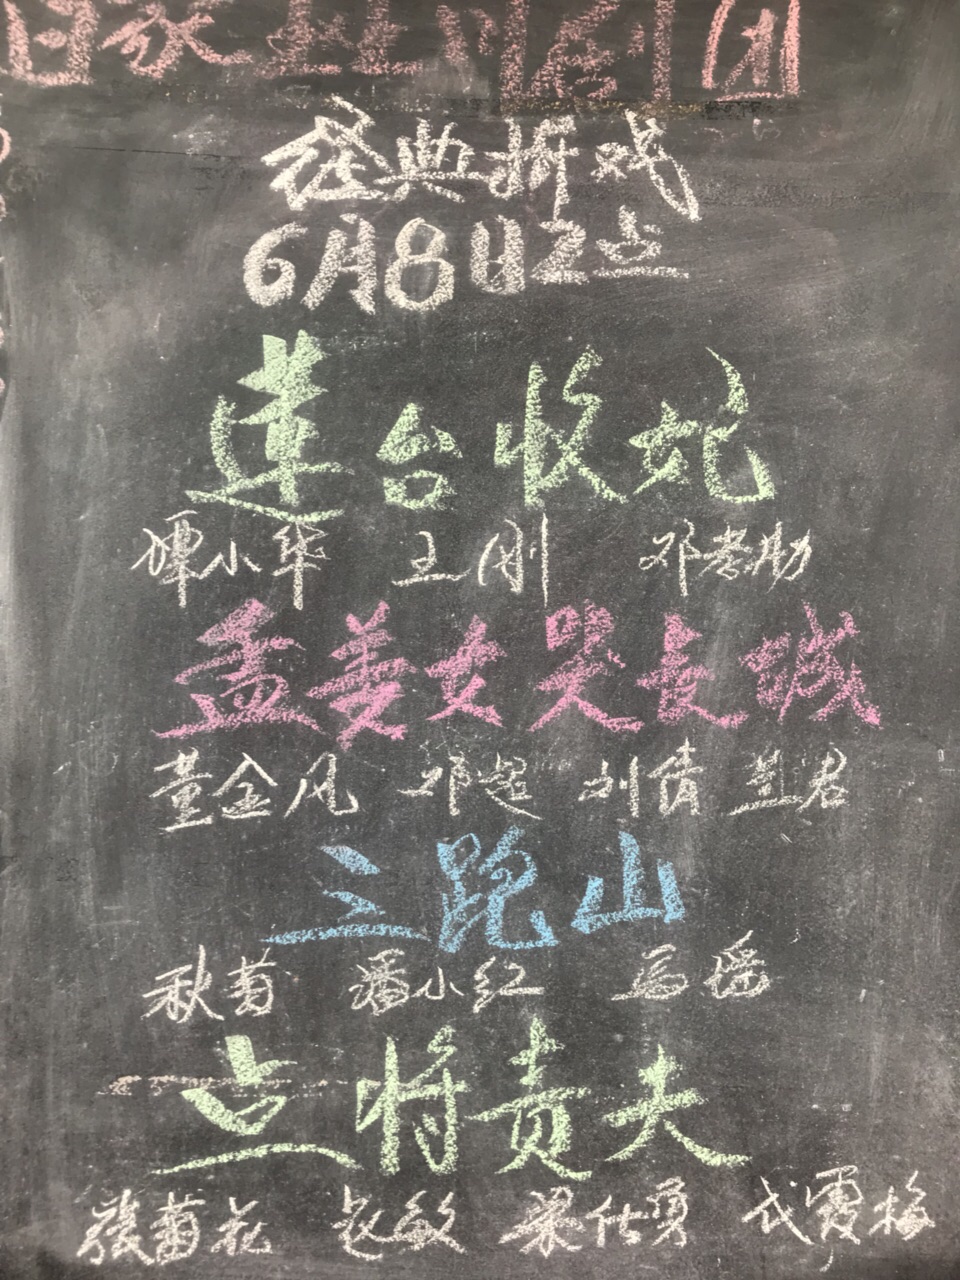 川剧团
经典折戏
6月8日2点
莲台收妃
谭小华 王刚 邓孝彤
孟姜女哭长城
董金凤 邓超 刘倩 兰君
三跪山
秋菊 潘小红 马瑶
点将责夫
张菊花 赵敏 梁仕勇 代霞梅